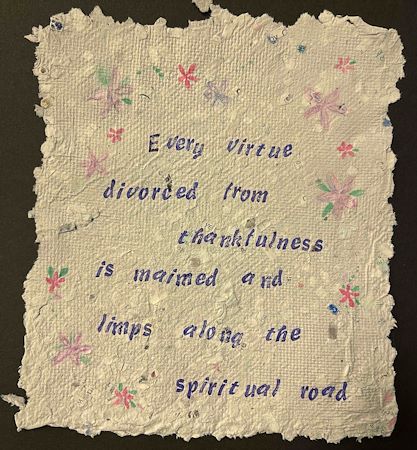 Every virtue
divorced from
thankfulness
is maimed and
limps along the
spiritual road